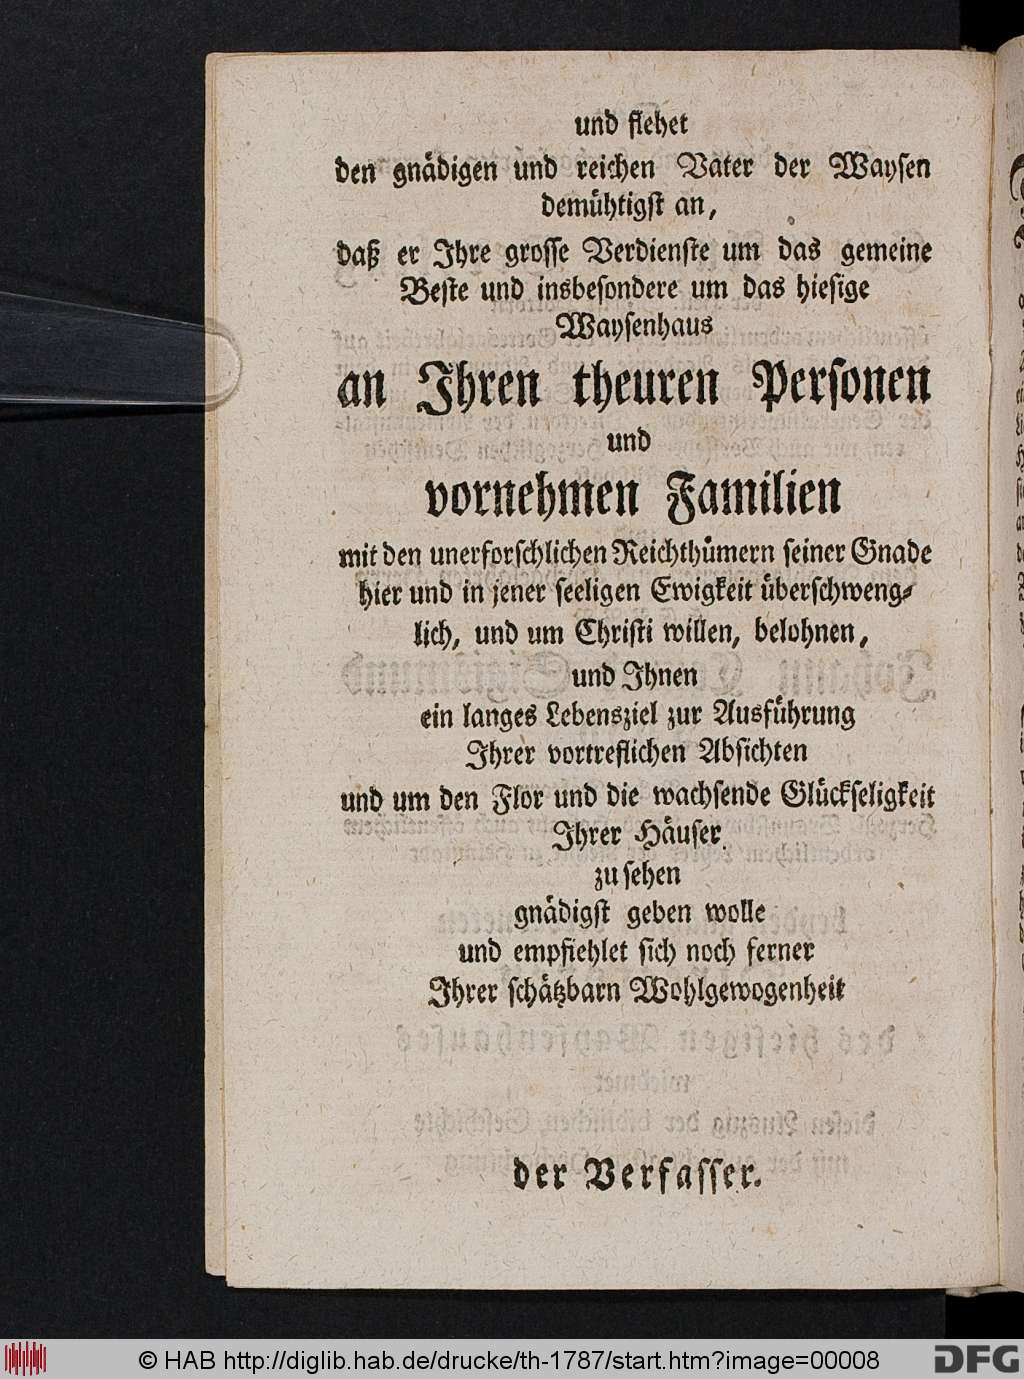 und flehet
den gnädigen und reichen Vater der Waysen
demühtigst an,
daß er Ihre grosse Verdienste um das gemeine
Beste und insbesondere um das hiesige
Waysenhaus
an Ihren theuren Personen
und
vornehmen Familien
mit den unerforschlichen Reichthümern seiner Gnade
hier und in jener seeligen Ewigkeit überschweng-
lich, und um Christi willen, belohnen,
und Ihnen
ein langes Lebensziel zur Ausführung
Ihrer vortreflichen Absichten
und um den Flor und die wachsende Glückseligkeit
Ihrer Häuser
zu sehen
gnädigst geben wolle
und empfiehlet sich noch ferner
Ihrer schätzbarn Wohlgewogenheit
der Verfasser.
© HAB http://diglib.hab.de/drucke/th-1787/start.htm?image=00008
DFG